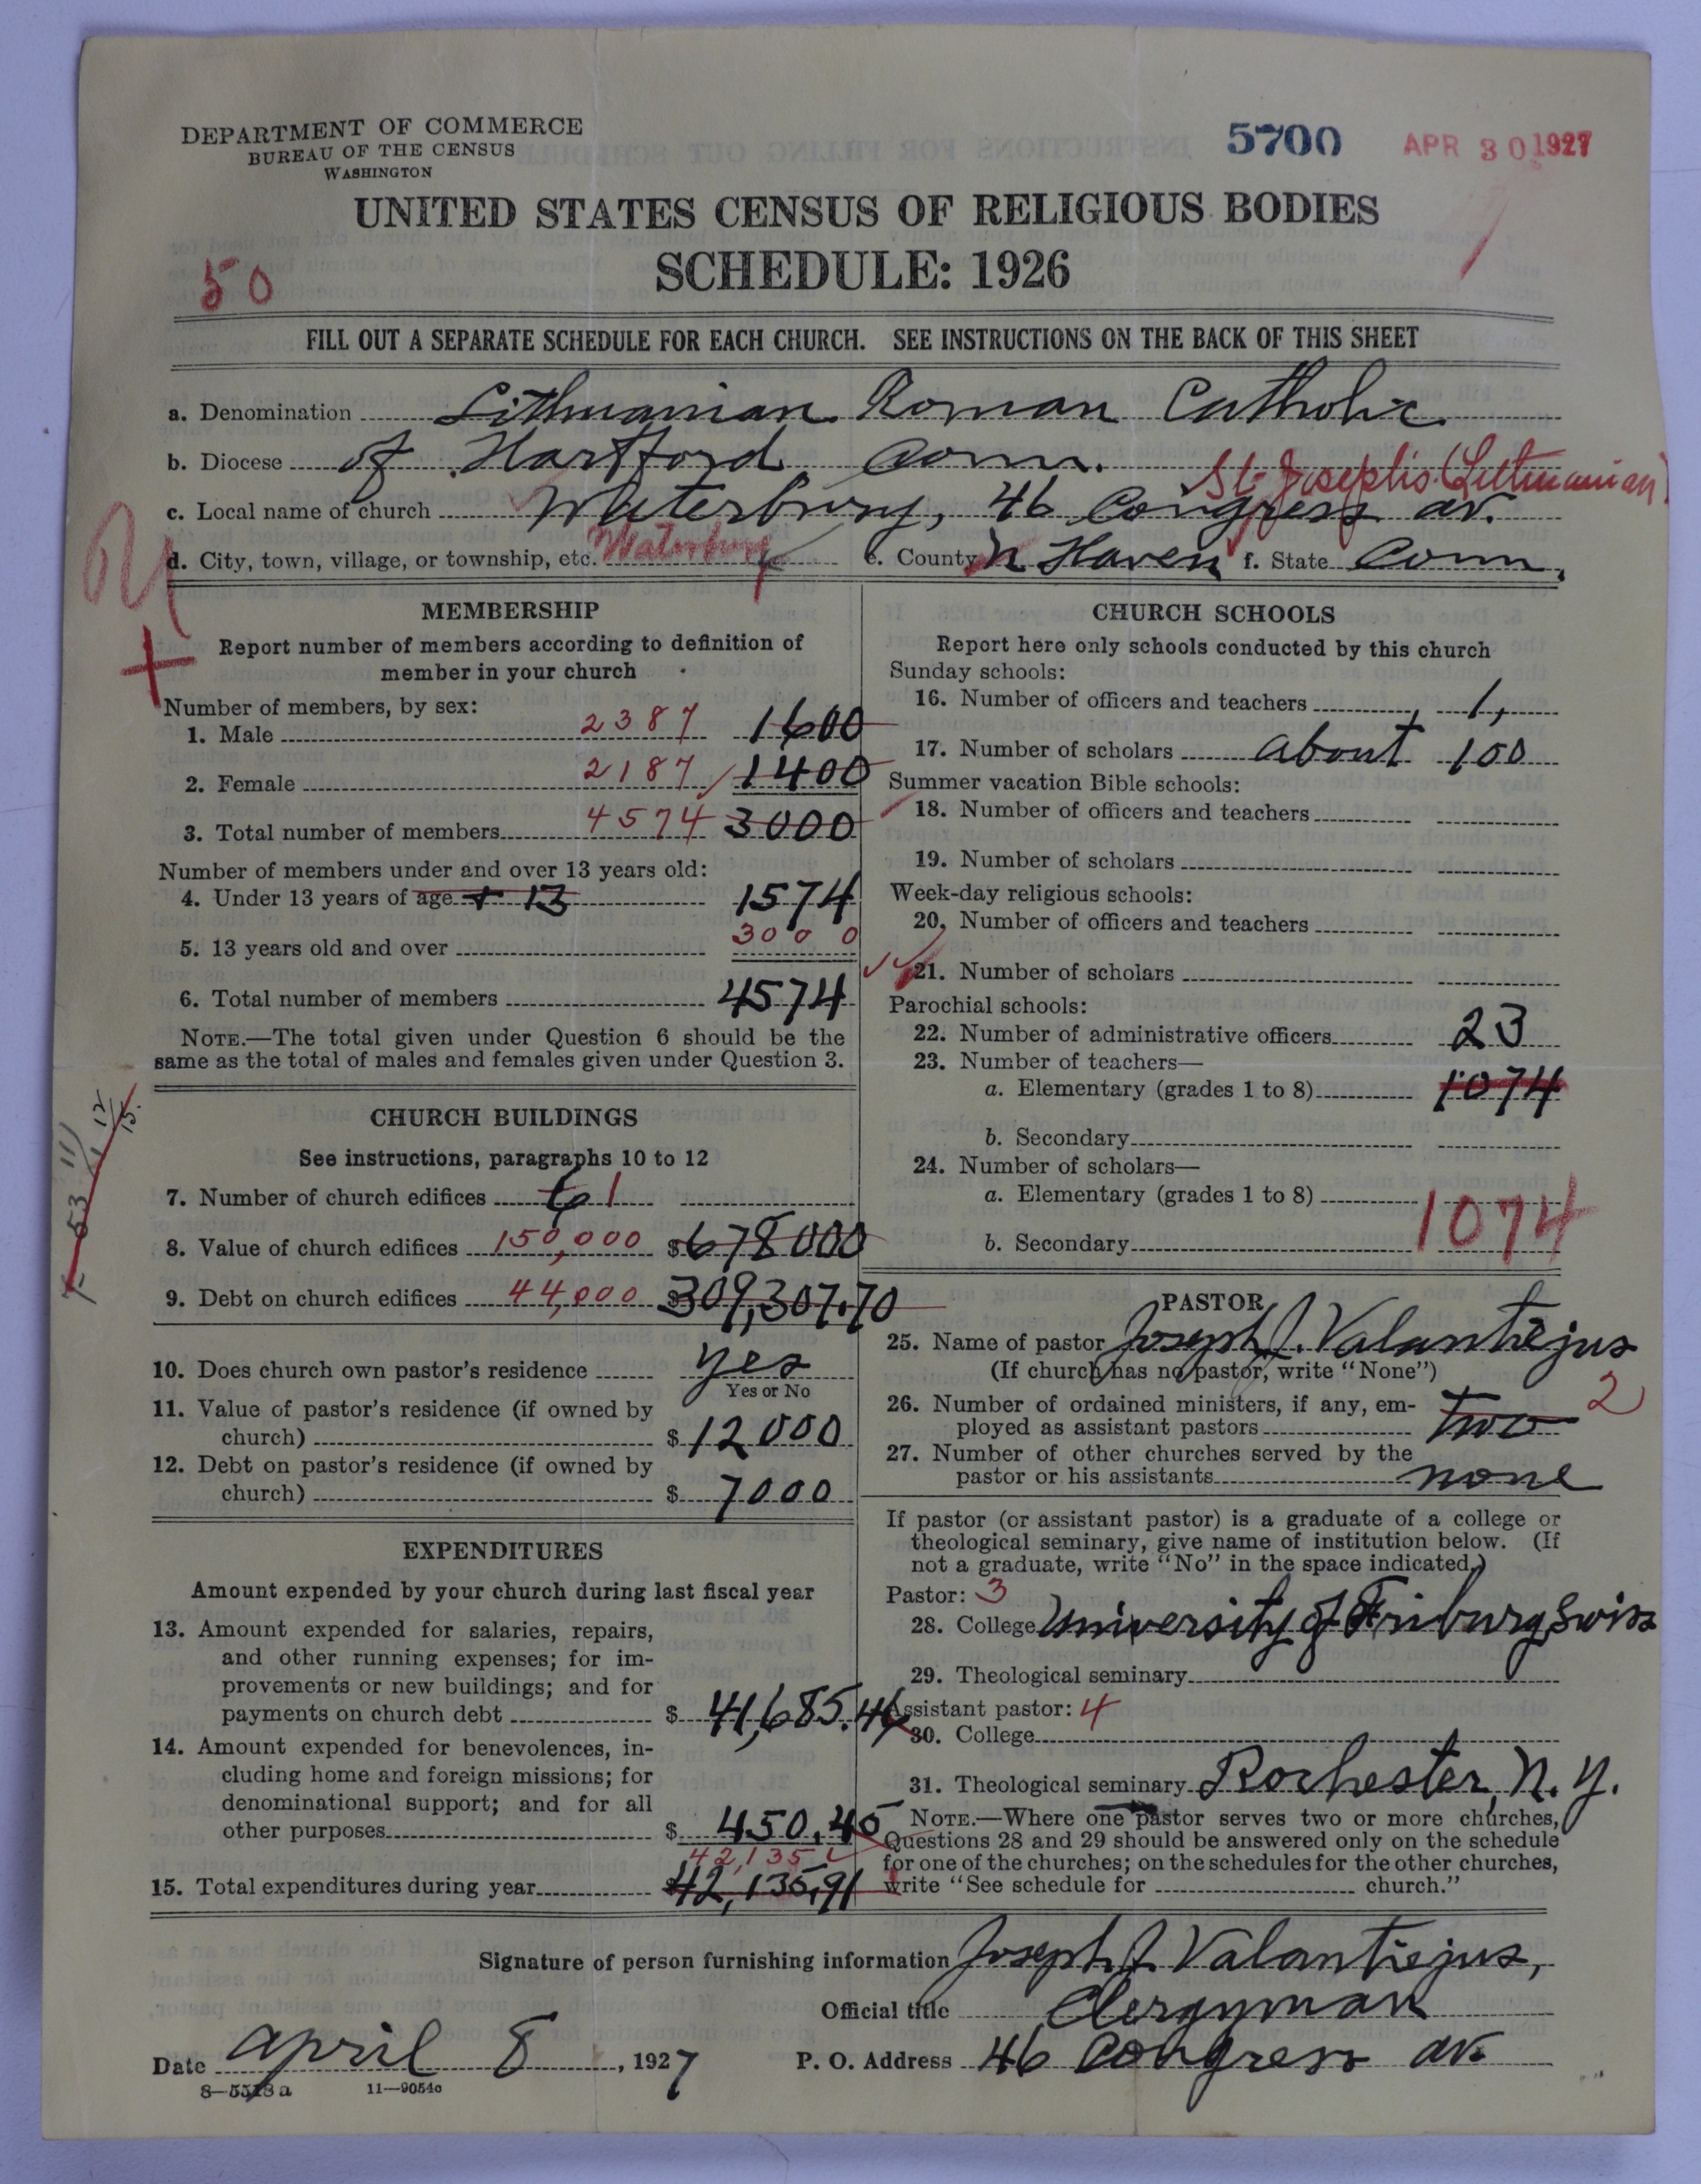 DEPARTMENT OF COMMERCE
BUREAU OF THE CENSUS
WASHINGTON
5700 APR 30 1927
UNITED STATES CENSUS OF RELIGIOUS BODIES
SCHEDULE: 1926
50
FILL OUT A SEPARATE SCHEDULE FOR EACH CHURCH. SEE INSTRUCTIONS ON THE BACK OF THIS SHEET
a. Denomination Lithuanian Roman Catholic
b. Diocese of Hartford Conn.
St. Joseph's (Lithuanian)
c. Local name of church Waterbury, 46 Congress av.
d. City, town, village, or township, etc. Waterbury e. County N Haven f. State Conn.
MEMBERSHIP
Report number of members according to definition of
member in your church
Number of members, by sex:
1. Male 2387 1600
2. Female 2187 1400
3. Total number of members 4574 3000
Number of members under and over 13 years old:
4. Under 13 years of age + 13 1574
5. 13 years old and over 3000
6. Total number of members 4574
NOTE.—The total given under Question 6 should be the
same as the total of males and females given under Question 3.
CHURCH BUILDINGS
See instructions, paragraphs 10 to 12
7. Number of church edifices 1
8. Value of church edifices 150,000 $678000
9. Debt on church edifices 44,000 $309,307.70
10. Does church own pastor's residence yes
Yes or No
11. Value of pastor's residence (if owned by
church) $12000
12. Debt on pastor's residence (if owned by
church) $7000
EXPENDITURES
Amount expended by your church during last fiscal year
13. Amount expended for salaries, repairs,
and other running expenses; for im-
provements or new buildings; and for
payments on church debt $41,685.46
14. Amount expended for benevolences, in-
cluding home and foreign missions; for
denominational support; and for all
other purposes $450.45
42,135
15. Total expenditures during year $42,135,91
CHURCH SCHOOLS
Report here only schools conducted by this church
Sunday schools:
16. Number of officers and teachers 1,
17. Number of scholars about 100
Summer vacation Bible schools:
18. Number of officers and teachers
19. Number of scholars
Week-day religious schools:
20. Number of officers and teachers
21. Number of scholars
Parochial schools:
22. Number of administrative officers 23
23. Number of teachers—
a. Elementary (grades 1 to 8) 1074
b. Secondary
24. Number of scholars—
a. Elementary (grades 1 to 8) 1074
b. Secondary
PASTOR
25. Name of pastor Joseph J. Valantiejus
(If church has no pastor, write "None")
26. Number of ordained ministers, if any, em-
ployed as assistant pastors two 2
27. Number of other churches served by the
pastor or his assistants none
If pastor (or assistant pastor) is a graduate of a college or
theological seminary, give name of institution below. (If
not a graduate, write "No" in the space indicated.)
Pastor: 3
28. College University of Friburg Swiss
29. Theological seminary
Assistant pastor: 4
30. College
31. Theological seminary Rochester, N. Y.
NOTE.—Where one pastor serves two or more churches,
Questions 28 and 29 should be answered only on the schedule
for one of the churches; on the schedules for the other churches,
write "See schedule for church."
Signature of person furnishing information Joseph J. Valantiejus,
Official title Clergyman
Date April 8, 1927 P. O. Address 46 Congress av.
8—5518a 11—9054c